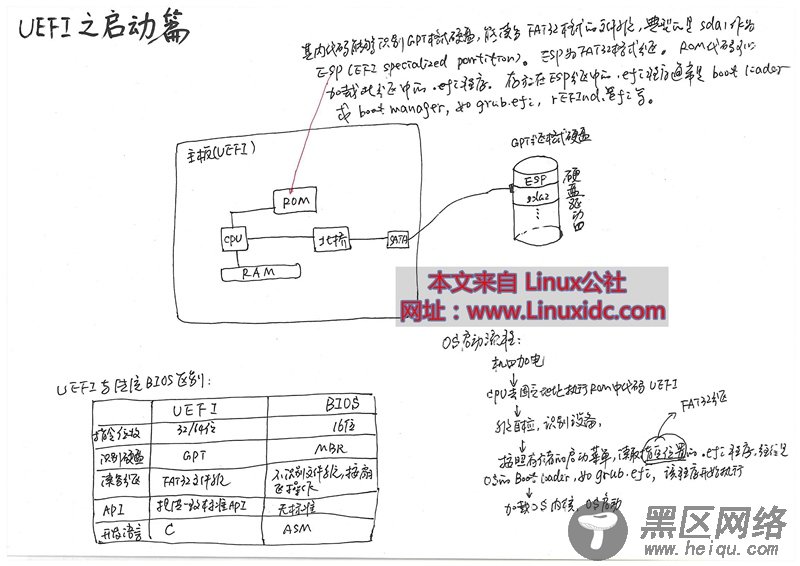 UEFI之启动篇
其内代码能够识别GPT格式硬盘,能读写FAT32格式的文件,典型的是sda1作为
ESP(EFI specialized partition)。ESP为FAT32格式分区。ROM代码可以
加载此分区中的.efi程序。存放在ESP分区中的.efi程序通常是boot loader
或boot manager,如grub.efi,rEFInd.efi等。
主板(UEFI)
ROM
CPU
北桥
SATA
RAM
GPT分区格式硬盘
ESP
sda2
硬盘驱动
本文来自 Linux公社
网址:www.Linuxidc.com
OS启动流程:
机器加电
CPU去固定地址执行ROM中代码UEFI
自检,识别设备,
FAT32分区
按照存储的启动菜单,读取指定位置的.efi程序,往往是
OS的Boot Loader,如grub.efi,该程序开始执行
加载OS内核,OS启动
UEFI与传统BIOS区别:
UEFI BIOS
指令位数 32/64位 16位
识别硬盘 GPT MBR
读写分区 FAT32文件系统 不识别文件系统,按扇
区操作
API 提供一致标准API 无标准
开发语言 C ASM
黑区网络
www.heiqu.com